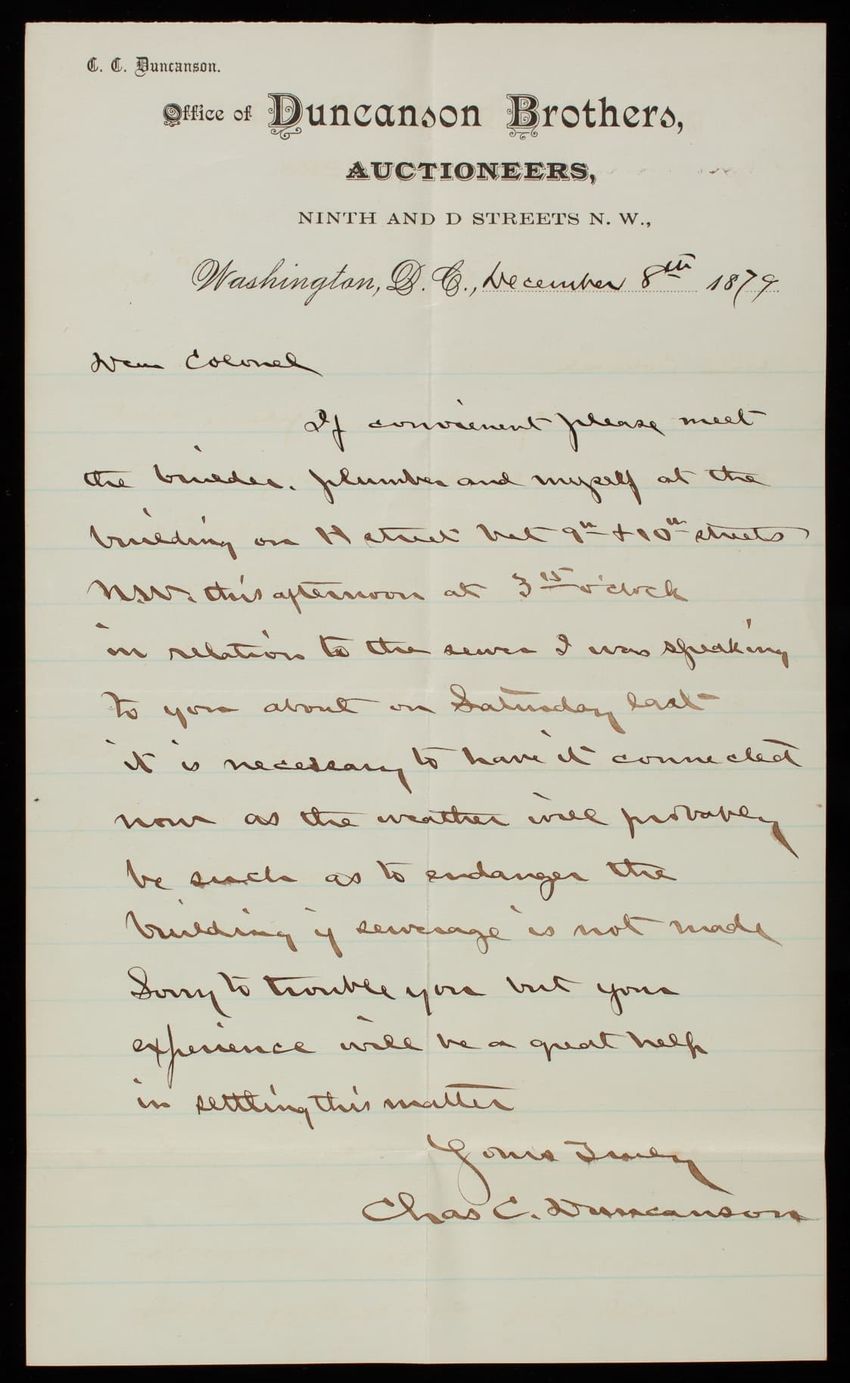 C. C. Duncanson.
Office of Duncanson Brothers,
AUCTIONEERS,
NINTH AND D STREETS N. W.,
Washington, D. C., December 8th 1879
Dear Colonel
If convienent please meet
the builder, plumber and myself at the
building on H street bet 9th & 10th streets
N.W. this afternoon at 3 15 o'clock
in relation to the sewer I was speaking
to you about on Saturday last
it is necessary to have it connected
now as the weather will probably
be such as to endanger the
building if sewerage is not made
Sorry to trouble you but your
experience will be a great help
in settling this matter
Yours Truly
Chas C. Duncanson